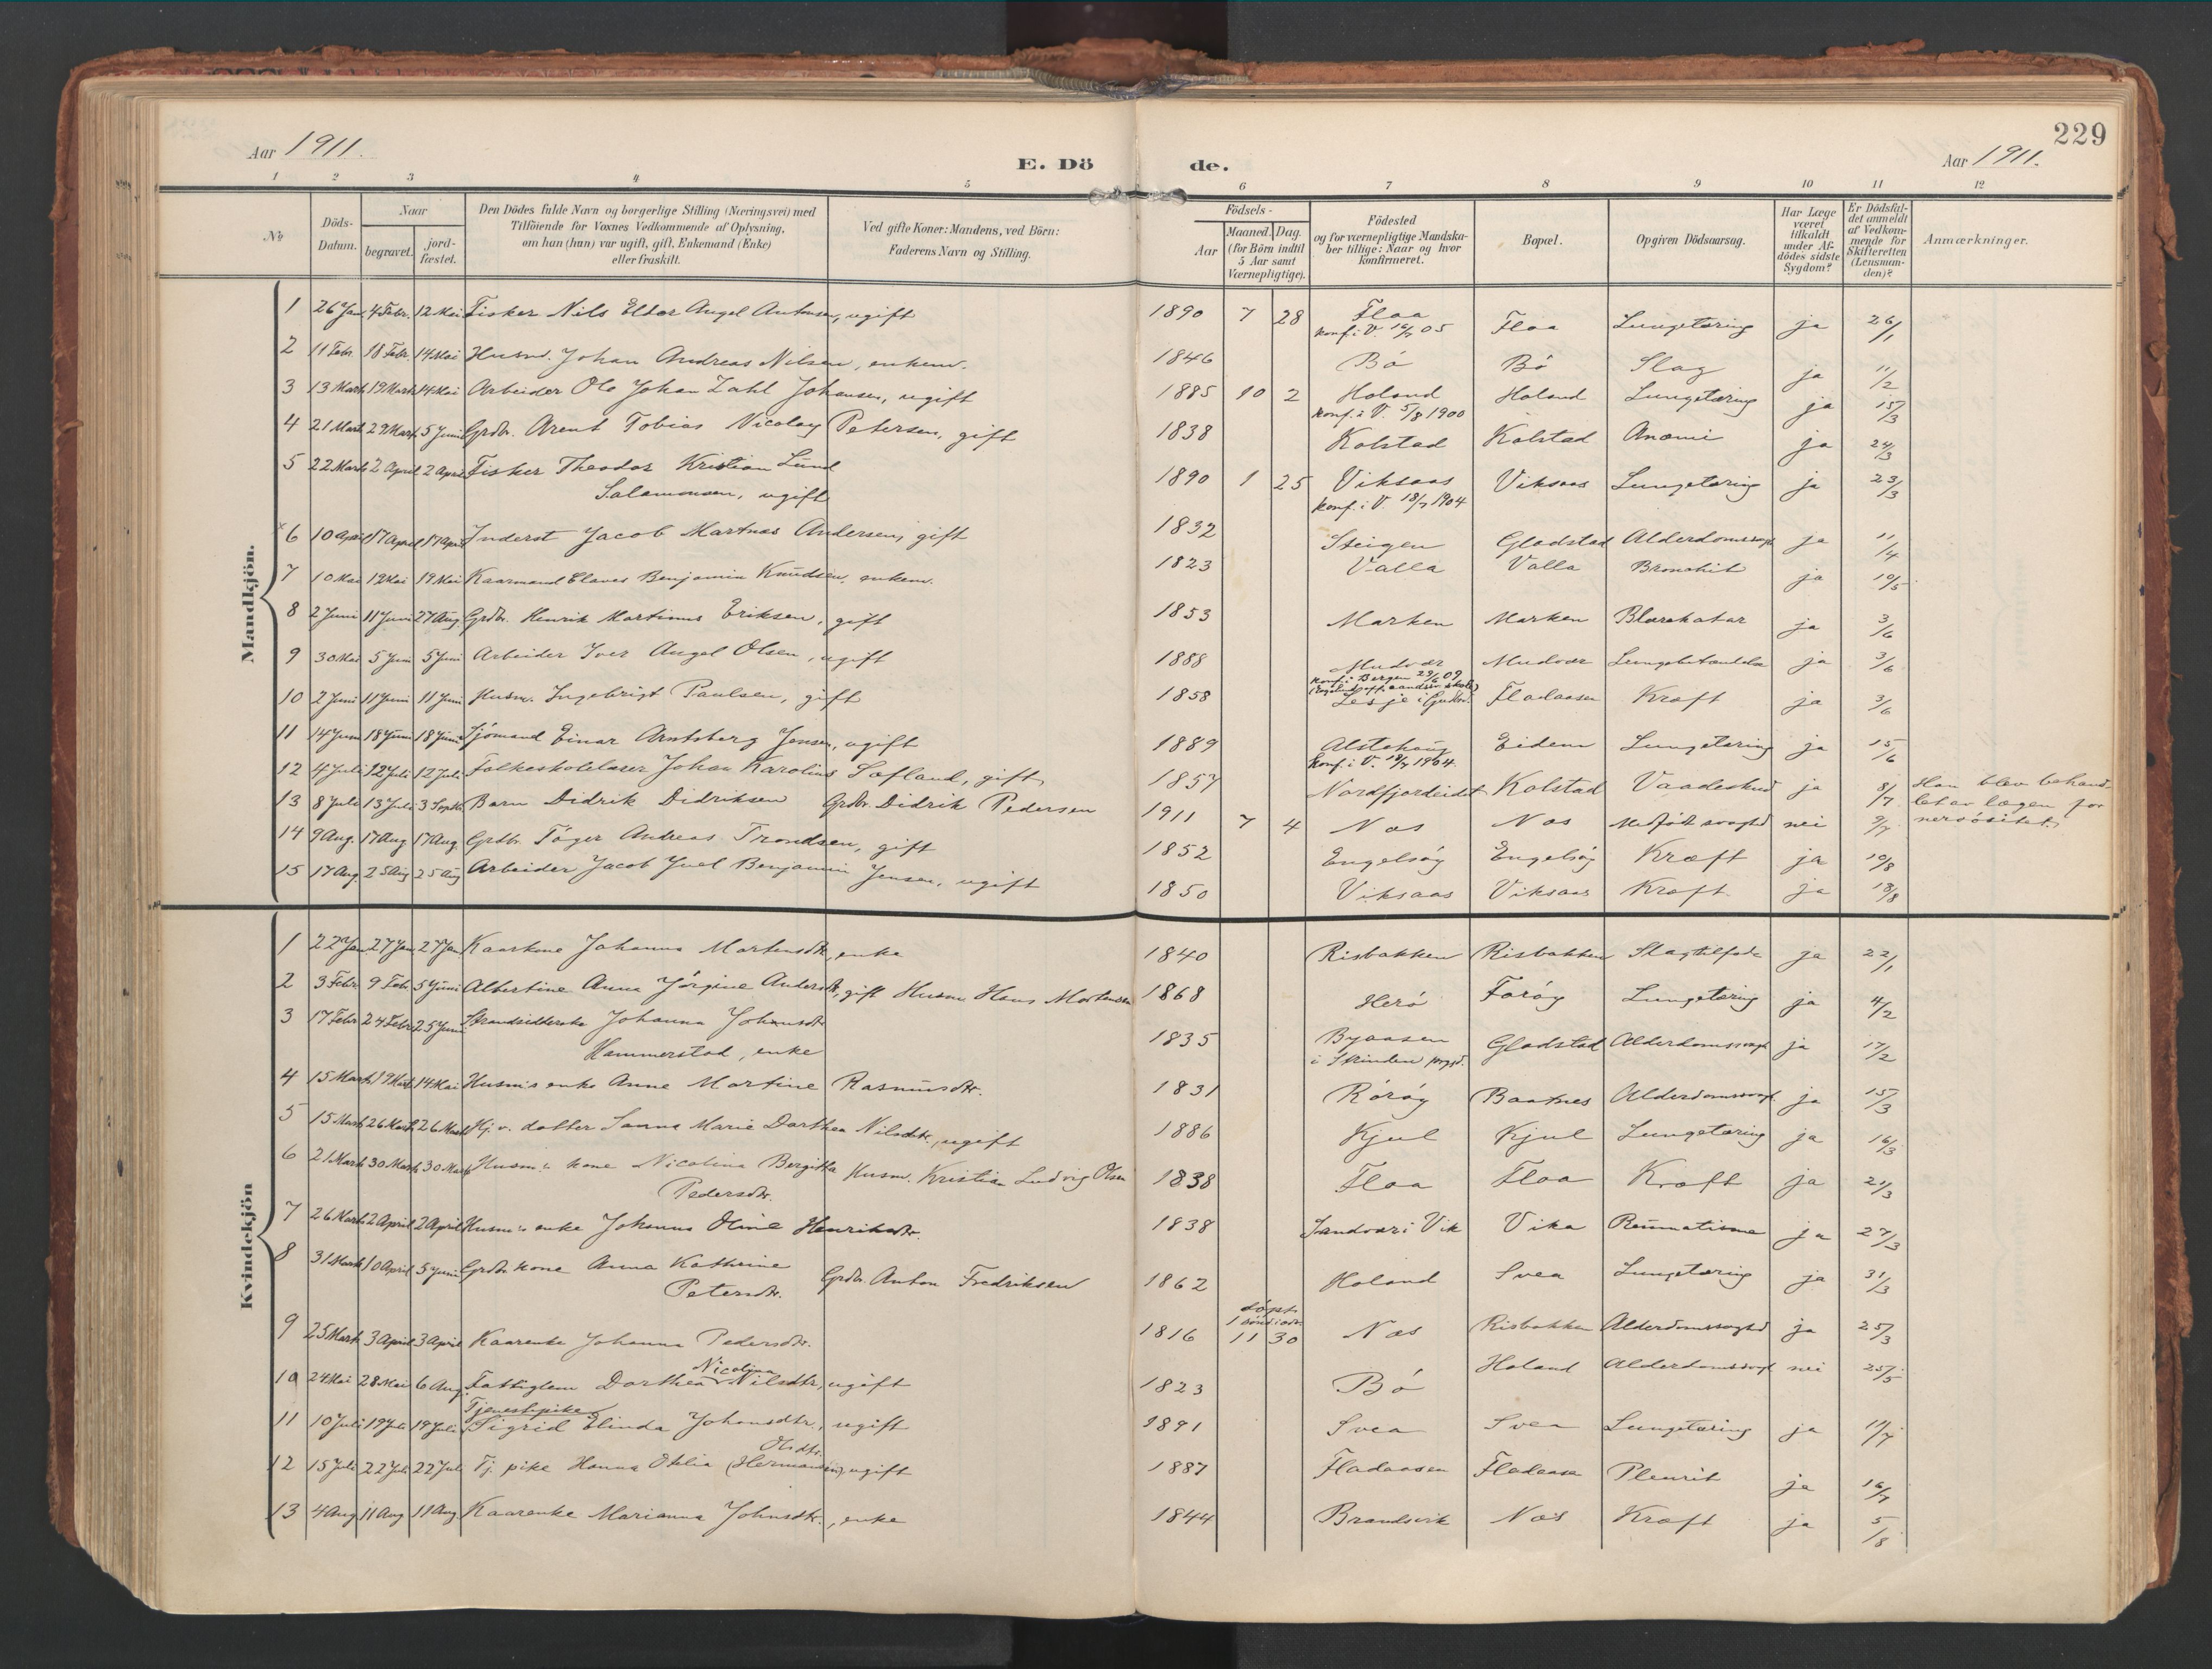 229
Aar 1911. E. Dö de. Aar 1911.
1 2 3 4 5 6 7 8 9 10 11 12
№
Döds-Datum.
Naar
begravet. jord-fæstet.
Den Dödes fulde Navn og borgerlige Stilling (Næringsvei) med
Tilföiende for Voxnes Vedkommende af Oplysning,
om han (hun) var ugift, gift, Enkemand (Enke)
eller fraskilt.
Ved gifte Koner: Mandens, ved Börn:
Faderens Navn og Stilling.
Födsels-
Aar
Maaned. Dag.
(for Börn indtil
5 Aar samt
Værnepligtige).
Födested
og for værnepligtige Mandska-
ber tillige: Naar og hvor
konfirmeret.
Bopæl.
Opgiven Dödsaarsag.
Har Læge
været
tilkaldt
under Af-
dödes sidste
Sygdom?
Er Dödsfal-
det anmeldt
af Vedkom-
mende for
Skifteretten
(Lensman-
den)?
Anmærkninger.
Mandkjön.
1 26 Jan 4 Febr. 12 Mai Fisker Nils Angel Antonsen, ugift 1890 7 28 Floa Floa Lungetæring ja 26/1
konf. i V. 16/7 05
2 11 Febr. 18 Febr. 14 Mai Husm. Johan Andreas Nilsen, enkem. 1846 Bö Bö Slag ja 11/2
3 13 Marts 19 Marts 14 Mai Arbeider Ole Johan Zahl Johansen, ugift 1885 10 2 Holand Holand Lungetæring ja 15/3
konf. i V. 5/8 1900
4 21 Marts 29 Marts 5 Juni Grdbr. Arent Tobias Nicolay Petersen, gift 1838 Kolstad Kolstad Anæmi ja 24/3
5 22 Marts 2 April 2 April Fisker Theodor Kristian Lund
Salamonsen, ugift 1890 1 25 Viksaas Viksaas Lungetæring ja 23/3
konf. i V. 18/7 1904
6 10 April 17 April 17 April Inderst Jacob Martnas Andersen, gift 1832 Steigen Gladstad Alderdomssvagh ja 11/4
7 10 Mai 19 Mai 19 Mai Kaarmand Benjamin Knudsen, enkem. 1823 Valla Valla Bronchit ja 10/5
8 2 Juni 11 Juni 27 Aug. Grdbr. Henrik Martinus Eriksen, gift 1853 Marken Marken Blærekatar ja 3/6
9 30 Mai 5 Juni 5 Juni Arbeider Iver Angel Olsen, ugift 1888 Mudvær Mudvær Lungebetændelse ja 3/6
konf. i Bergen 29/6 09
10 2 Juni 11 Juni 11 Juni Husm. Ingebrigt Paulsen, gift 1858 Lesje i Gudbr. Fladaasen Kræft ja 3/6
11 14 Juni 18 Juni 18 Juni Sjömand Einar Arntsberg Jensen, ugift 1889 Alstahaug Eidem Lungetæring ja 15/6
konf. i V. 18/7 1904.
12 4 Juli 12 Juli 12 Juli Folkeskolelærer Johan Karolius Sofland, gift 1857 Nordfjordeidet Kolstad Vaadeskud ja 8/7 Han blev behand-
let av lægen for
nervösitet.
13 8 Juli 13 Juli 3 Septbr. Barn Didrik Didriksen Grdbr. Didrik Pedersen 1911 7 4 Næs Næs Medfödt svaghed nei 9/7
14 9 Aug. 17 Aug 17 Aug Grdbr. Töger Andreas Trondsen, gift 1852 Engelsöy Engelsöy Kræft ja 10/8
15 17 Aug. 25 Aug 25 Aug Arbeider Jacob Juel Benjamin Jensen, ugift 1850 Viksaas Viksaas Kræft ja 18/8
Kvindekjön
1 22 Jan 27 Jan 27 Jan Kaarkone Johanna Martensdtr, enke 1840 Risbakken Risbakken Slagtilfælde ja 22/1
2 3 Febr 9 Feb. 5 Juni Albertine Anna Jörgine Andersdtr, gift Husm Hans Mortensen 1868 Herö Foröy Lungetæring ja 4/2
3 17 Febr 24 Febr 25 Juni Strandsidderske Johanna Johnsdtr
Hammerstad, enke 1835 Byaasen Gladstad Alderdomssvagh ja 17/2
i Strinden prgjd.
4 15 Marts 19 Marts 14 Mai Husm's enke Anne Martine Rasmusdtr. 1831 Röröy Baatnes Alderdomssvagh ja 15/3
5 15 Marts 26 Marts 26 Marts Hj. v. datter Sanna Marie Dorthea Nilsdtr., ugift 1886 Kjul Kjul Lungetæring ja 16/3
6 21 Marts 30 Marts 30 Marts Husm:s kone Nicoline Bergitta Husm. Kristian Ludvig Olsen
Pedersdtr. 1838 Floa Floa Kræft ja 21/3
7 26 Marts 2 April 2 April Husm:s enke Johanna Oline Henriksdtr. 1838 Sandvær i Vik Vika Reumatisme ja 27/3
8 31 Marts 10 April 5 Juni Grdbr kone Anna Kathrine Grdbr. Anton Fredriksen
Petersdtr. 1862 Holand Svea Lungetæring ja 31/3
döpt
9 25 Marts 3 April 3 April Kaarenke Johanna Pedersdtr. 1816 11 30 Næs Risbakken Alderdomssvaghed ja 25/3
10 24 Mai 28 Mai 6 Aug. Fattiglem Dorthea Nicolina Nilsdtr, ugift 1823 Bö Holand Alderdomssvagh nei 25/5
11 10 Juli 19 Juli 19 Juli Tjenestepike
Sigrid Elinda Johansdtr., ugift 1891 Svea Svea Lungetæring ja 11/7
12 15 Juli 22 Juli 22 Juli Tj. pike Hanna Otelia Olsdtr. (Hermansen), ugift 1887 Fladaasen Fladaasen Pleurit ja 16/7
13 4 Aug 11 Aug 11 Aug Kaarenke Marianna Johnsdtr., enke 1844 Brandsvik Næs Kræft ja 5/8